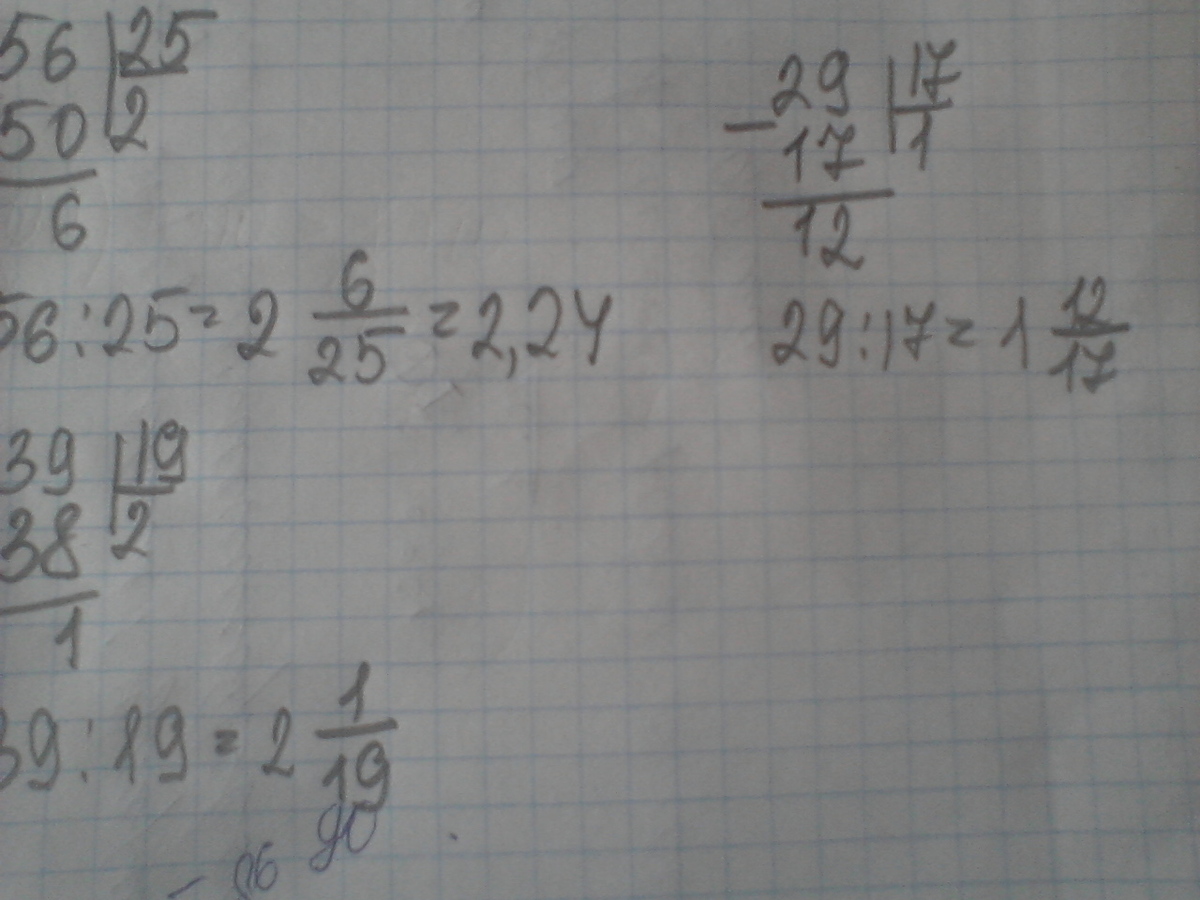 56 25
50 2
6
56:25=2 6/25=2,24
- 29 17
17 1
12
29:17=1 12/17
39 19
38 2
1
39:19=2 1/19
90
- 96